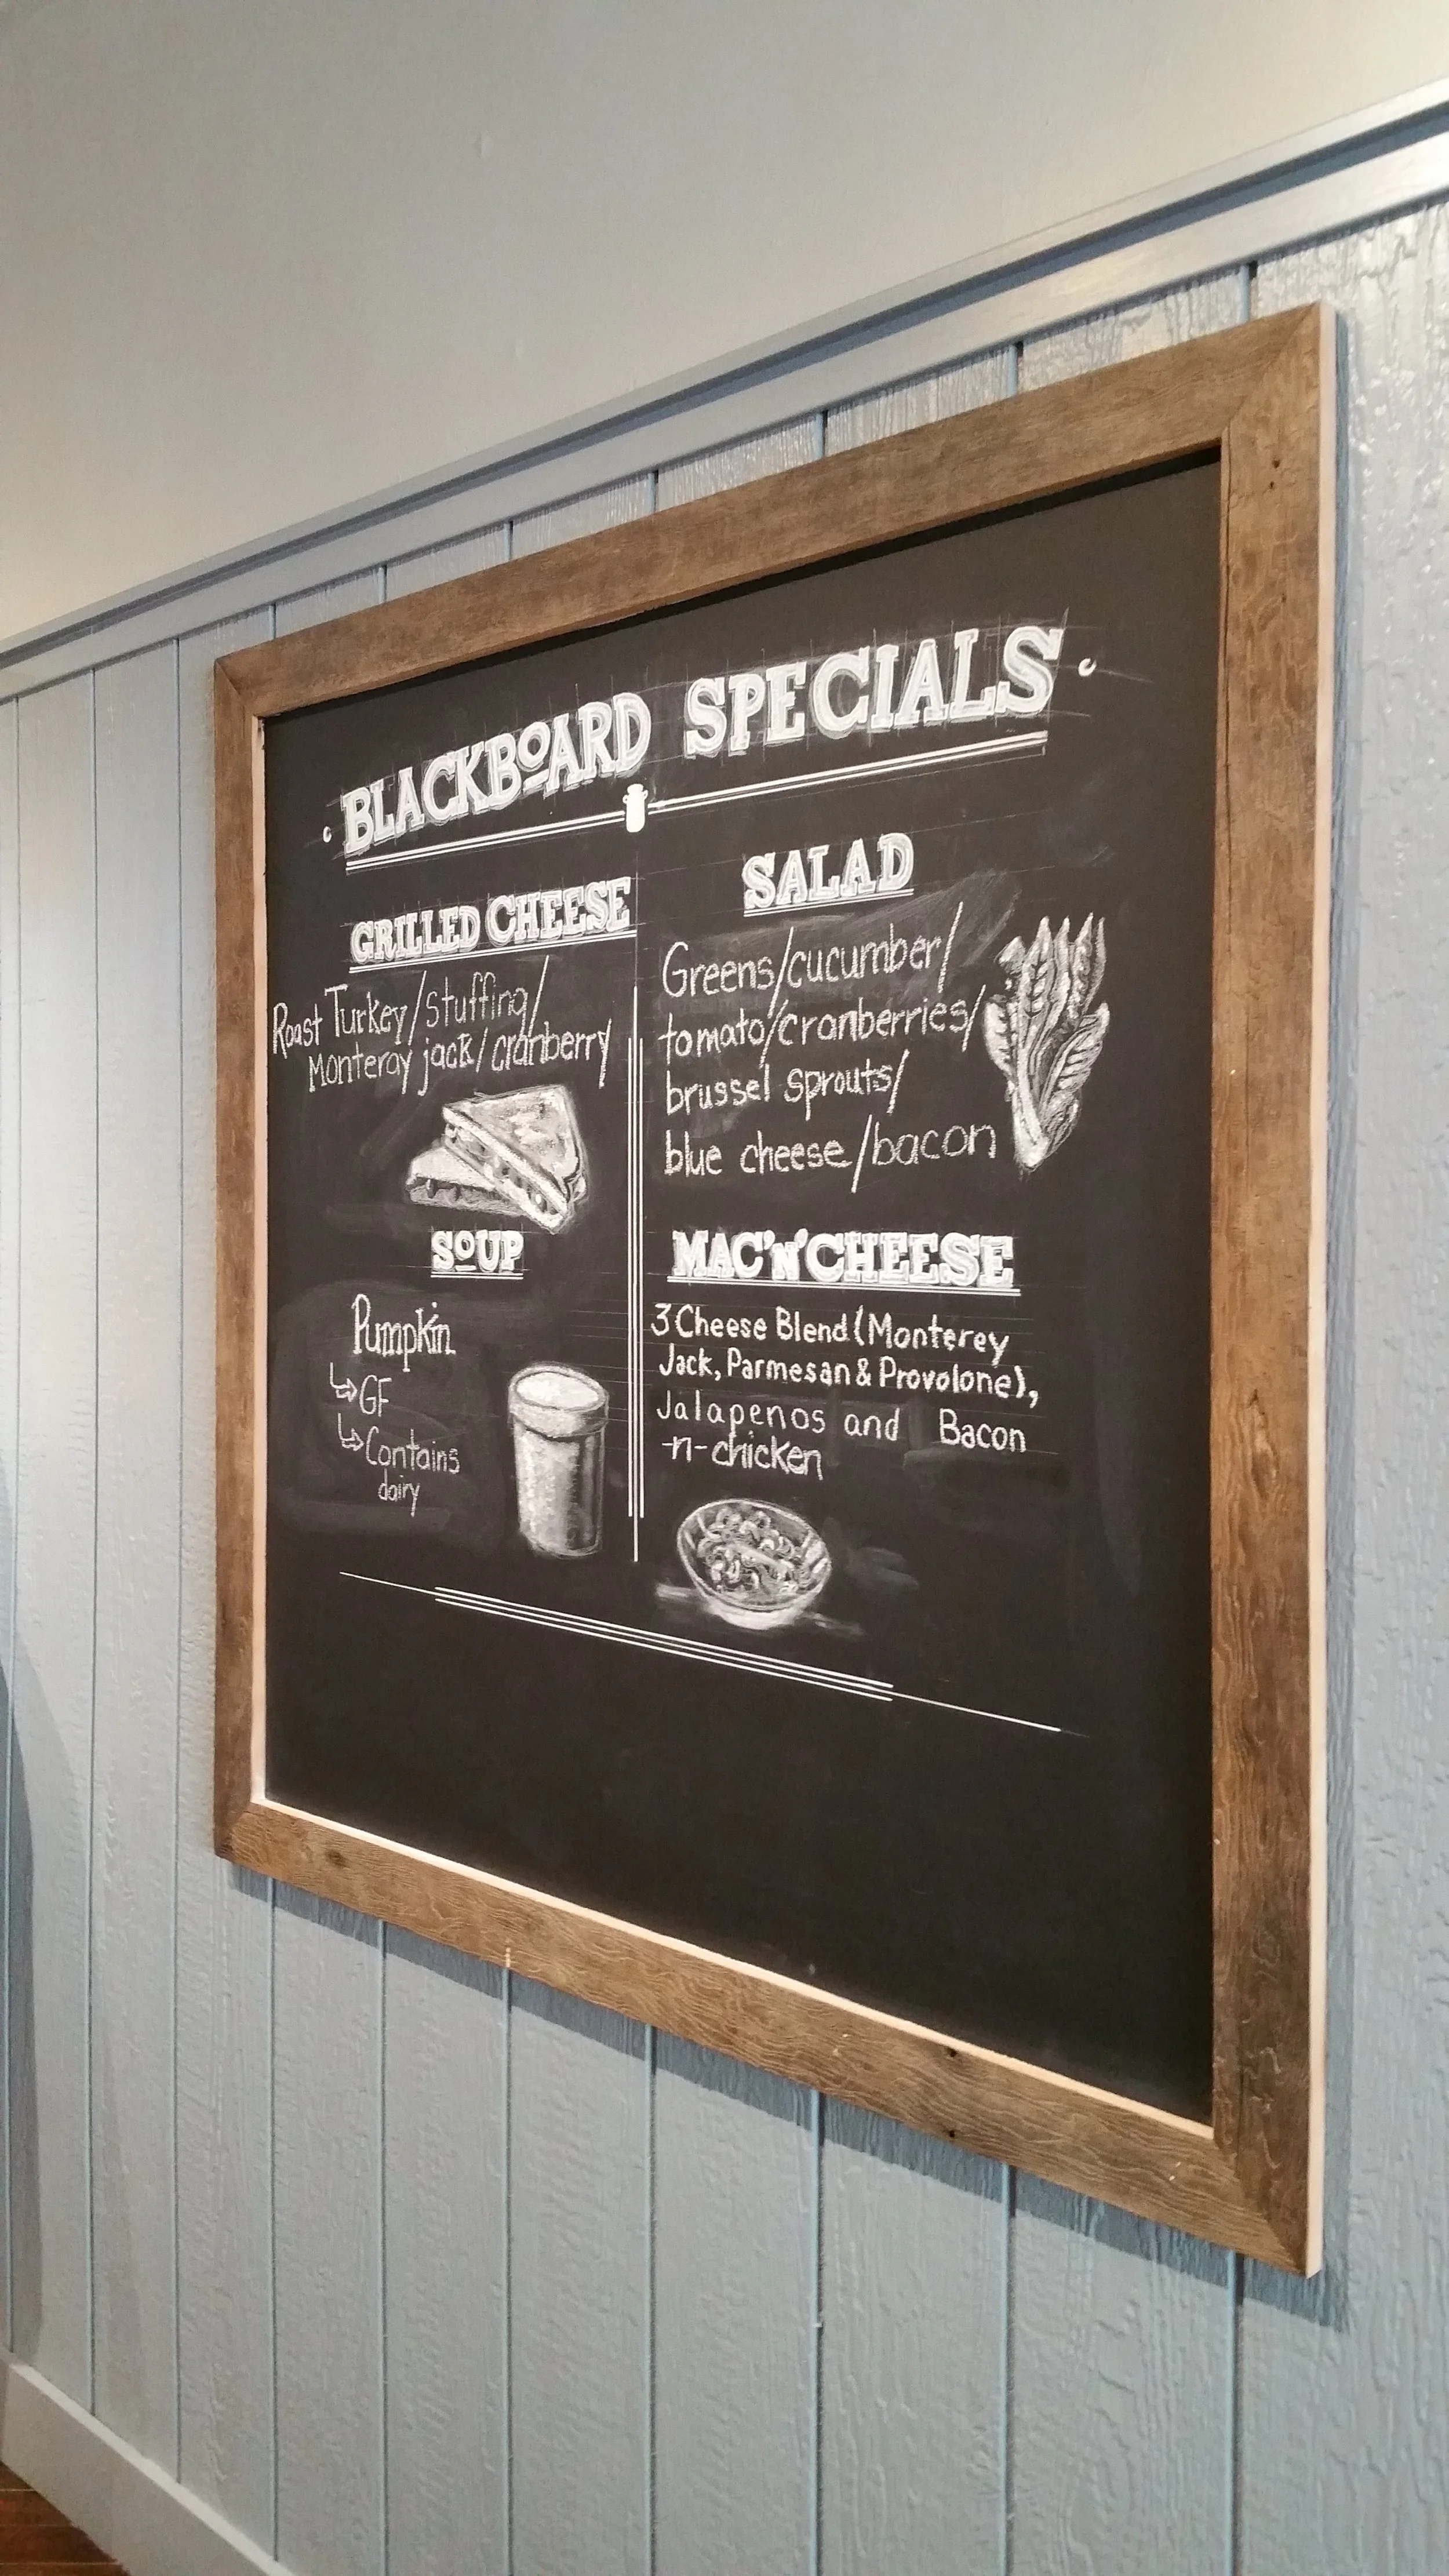 BLACKBOARD SPECIALS
GRILLED CHEESE
Roast Turkey/stuffing/
Monteray jack/cranberry
SOUP
Pumpkin
↳GF
↳Contains
dairy
SALAD
Greens/cucumber/
tomato/cranberries/
brussel sprouts/
blue cheese/bacon
MAC'N'CHEESE
3 Cheese Blend (Monterey
Jack, Parmesan & Provolone),
Jalapenos and Bacon
-n-chicken